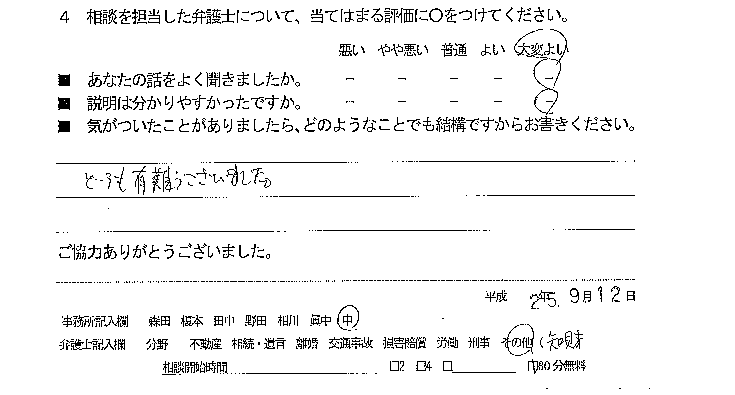 4 相談を担当した弁護士について、当てはまる評価に○をつけてください。
悪い やや悪い 普通 よい 大変よい
■ あなたの話をよく聞きましたか。 － － － － －
■ 説明は分かりやすかったですか。 － － － － －
■ 気がついたことがありましたら、どのようなことでも結構ですからお書きください。
どうも有難うございました。
ご協力ありがとうございました。
平成 25年 9月12日
事務所記入欄 森田 榎本 田中 野田 相川 眞中 中
弁護士記入欄 分野 不動産 相続・遺言 離婚 交通事故 損害賠償 労働 刑事 その他 (知財
相談開始時間 □2 □4 □ □30分無料